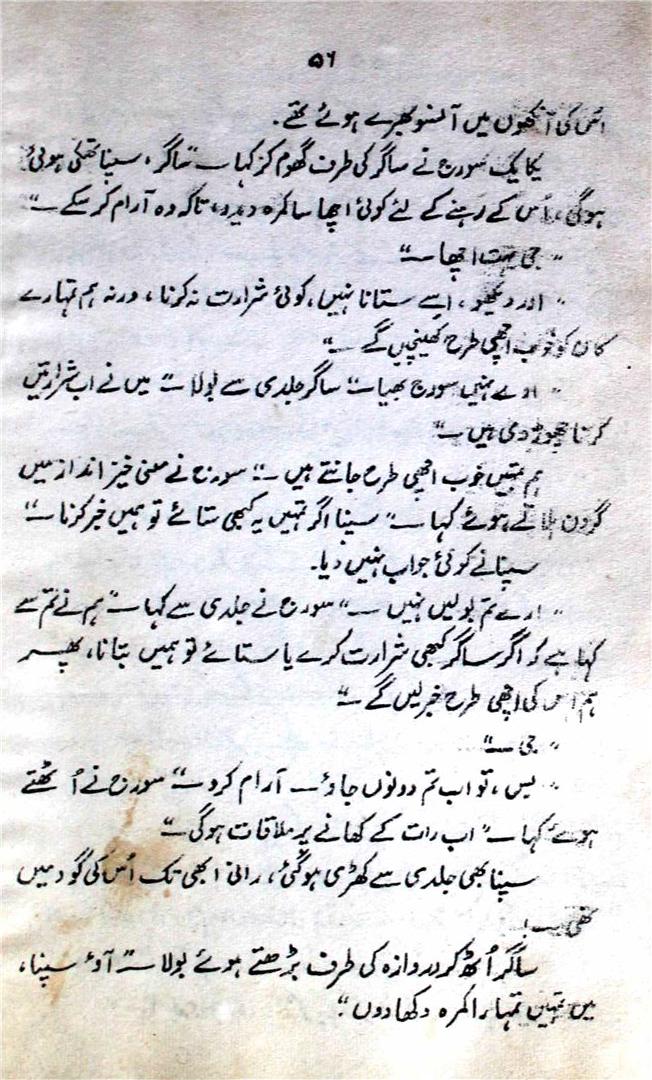 ۵۶
اُس کی آنکھوں میں آنسو بھرے ہوئے تھے۔
یکایک سورج نے ساگر کی طرف گھوم کر کہا — "ساگر، سپنا تھکی ہوئی
ہوگی، اُس کے رہنے کے لئے کوئی اچھا سا کمرہ دیدو، تاکہ وہ آرام کر سکے —"
"جی بہت اچھا —"
"اور دیکھو، اِسے ستانا نہیں، کوئی شرارت نہ کرنا، ورنہ ہم تمہارے
کان کو خوب اچھی طرح کھینچیں گے —"
"ارے نہیں سورج بھیا —" ساگر جلدی سے بولا — "میں نے اب شرارتیں
کرنا چھوڑ دی ہیں —"
ہم تمہیں خوب اچھی طرح جانتے ہیں —" سورج نے معنی خیز انداز میں
گردن ہلاتے ہوئے کہا — "سپنا اگر تمہیں یہ کبھی ستائے تو ہمیں خبر کرنا —"
سپنا نے کوئی جواب نہیں دیا۔
"ارے تم بولیں نہیں —" سورج نے جلدی سے کہا — "ہم نے تم سے
کہا ہے کہ اگر ساگر کبھی شرارت کرے یا ستائے تو ہمیں بتانا، پھر
ہم اس کی اچھی طرح خبر لیں گے —"
"جی —"
"بس، تو اب تم دونوں جاؤ — آرام کرو —" سورج نے اُٹھتے
ہوئے کہا — "اب رات کے کھانے پر ملاقات ہوگی —"
سپنا بھی جلدی سے کھڑی ہوگئی، رانی ابھی تک اُس کی گود میں
تھی۔
ساگر اُٹھ کر دروازہ کی طرف بڑھتے ہوئے بولا — "آؤ سپنا،
میں تمہیں تمہارا کمرہ دکھا دوں"